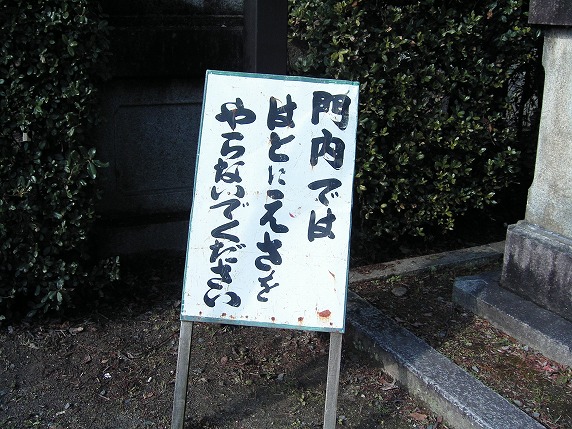 門内では
はとにえさを
やらないでください